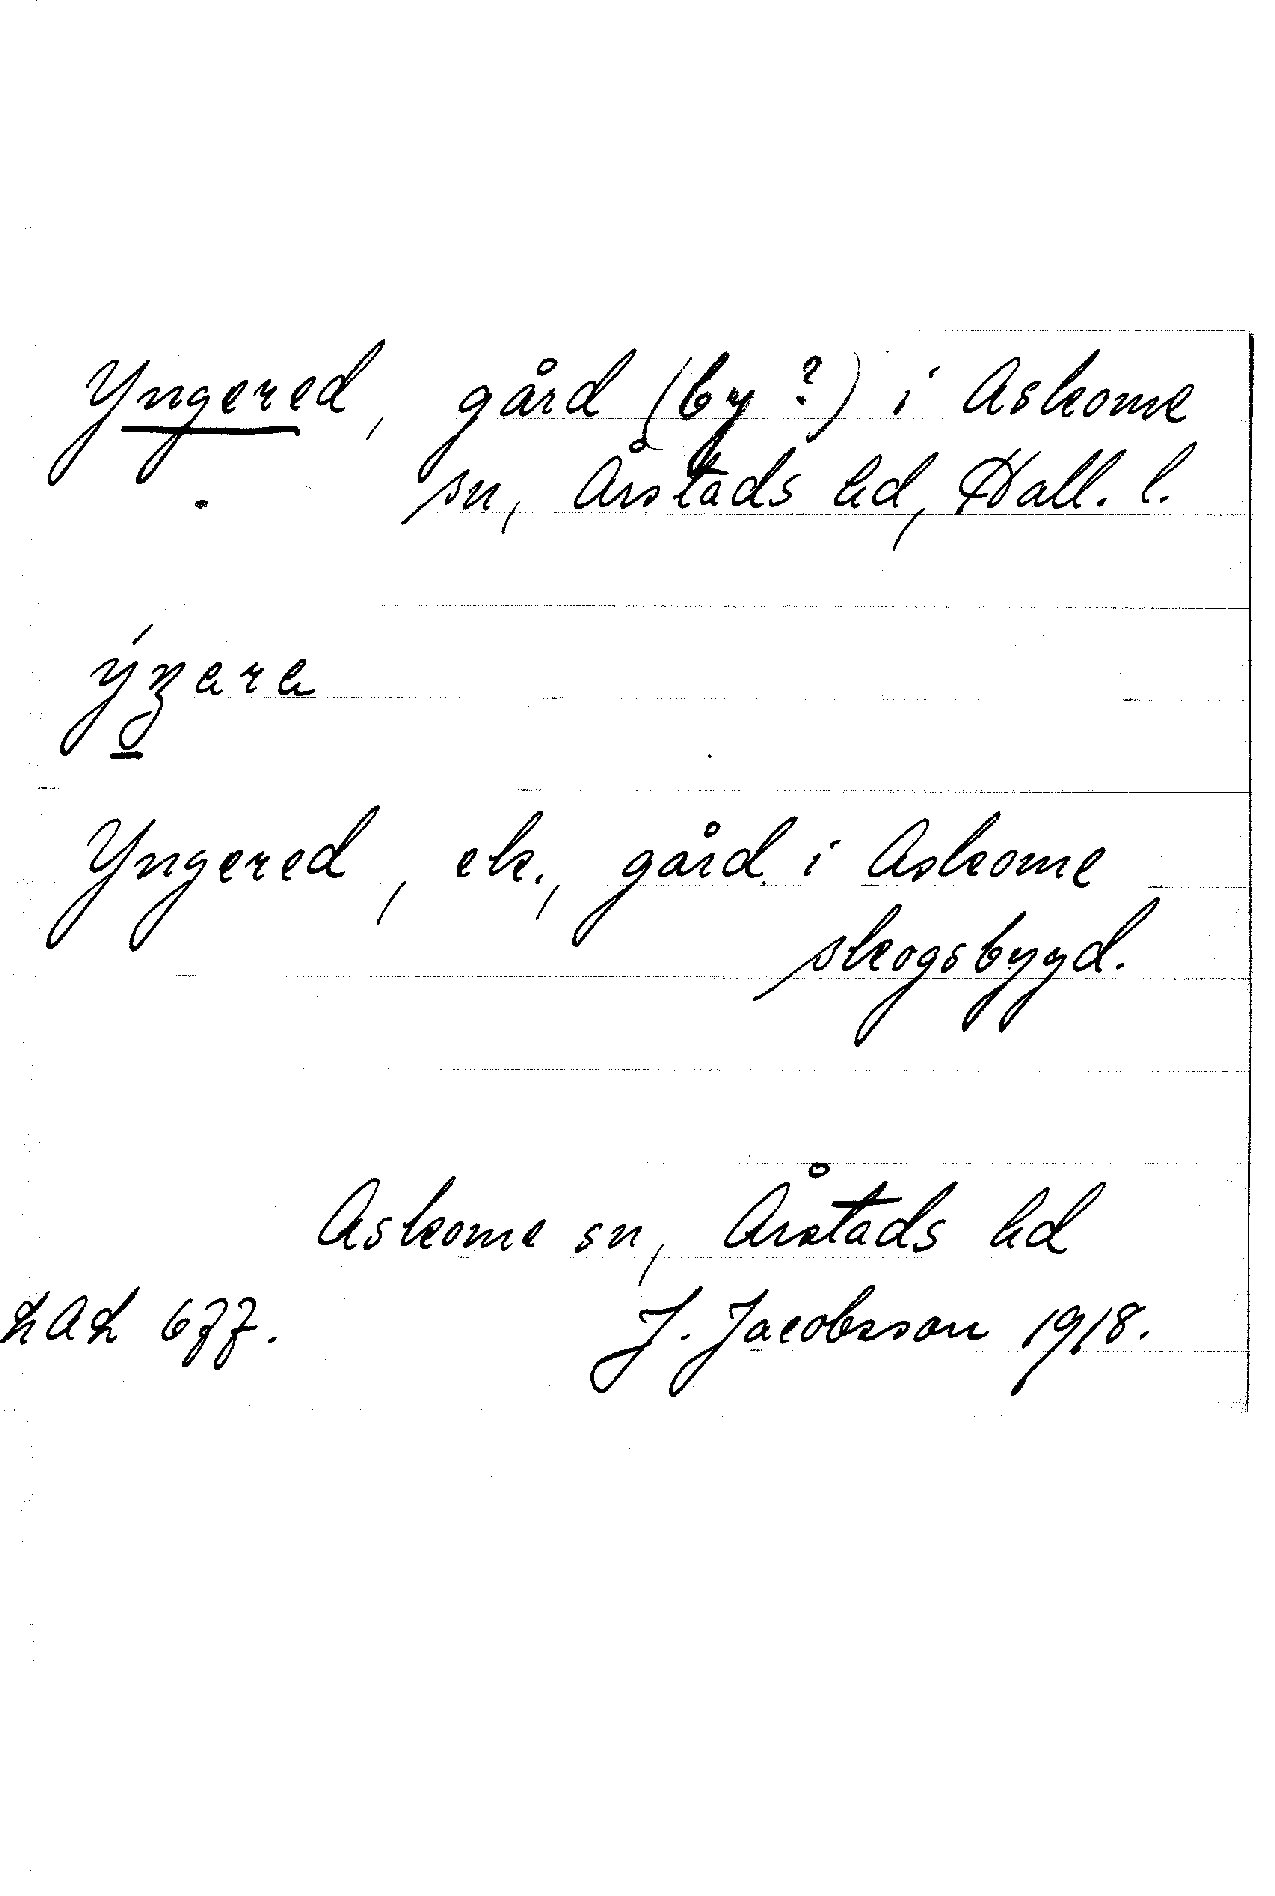 Yngered, gård (by?) i Askome
sn, Årstads hd, Hall. l.
ýŋara
Yngered, ek., gård i Askome
skogsbygd.
Askome sn, Årstads hd
LAL 677. J. Jacobsson 1918.